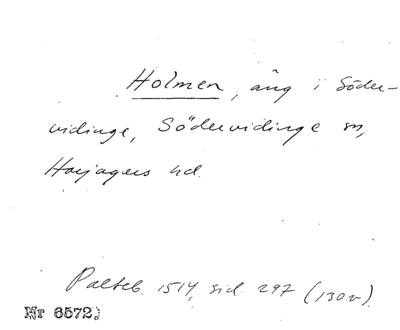 Holmen, äng i Söder-
vidinge, Södervidinge sn,
Harjagers hd.
Palteb. 1514, sid. 297 (130v).
Nr 6572.